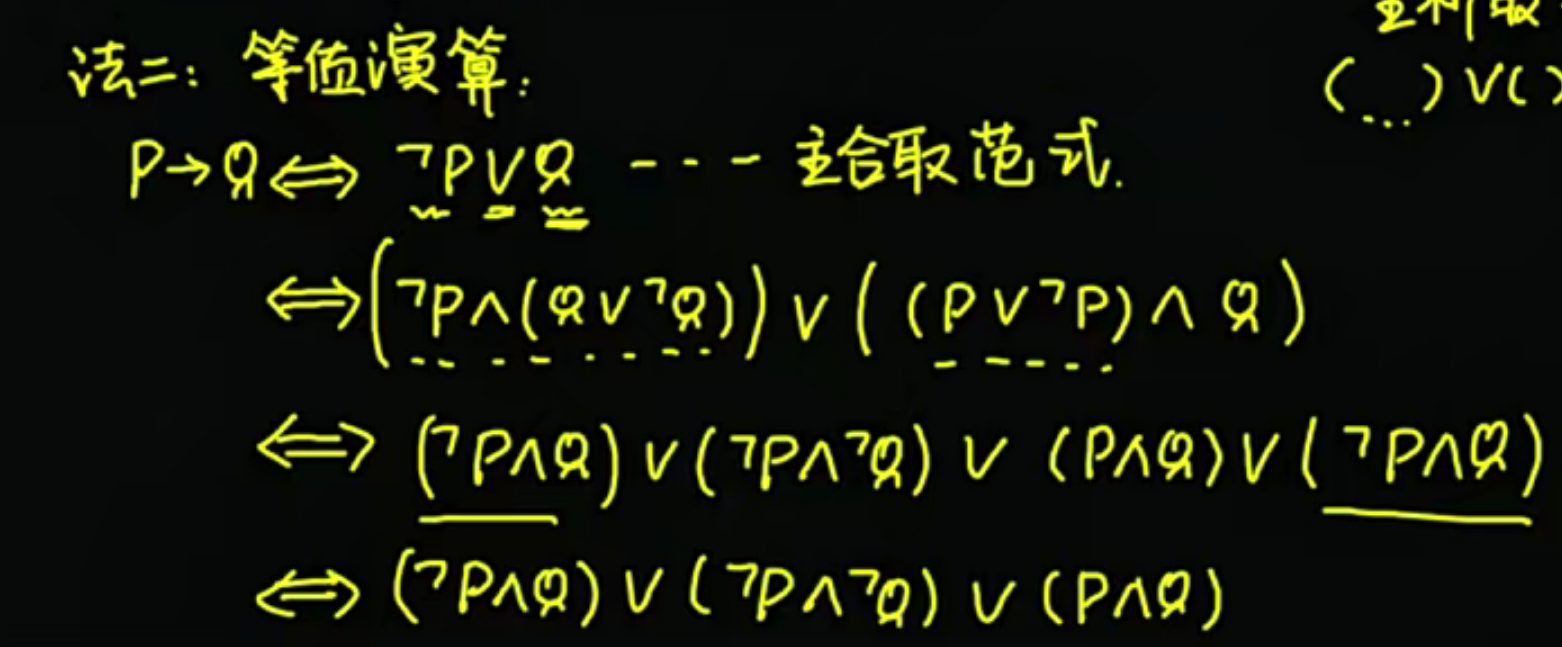 主析取
(...)∨()
法二: 等值演算:
P→Q⇔ ¬P∨Q ---- 主合取范式.
⇔(¬P∧(Q∨¬Q))∨((P∨¬P)∧Q)
⇔ (¬P∧Q)∨(¬P∧¬Q)∨(P∧Q)∨(¬P∧Q)
⇔ (¬P∧Q)∨(¬P∧¬Q)∨(P∧Q)